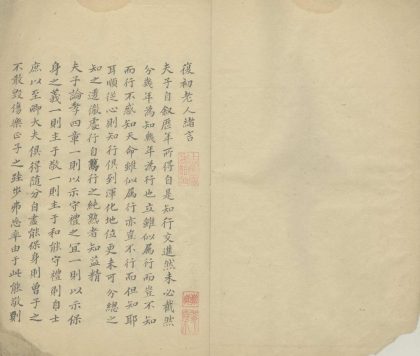 復初老人緒言
夫子自叙歷年所得自是知行交進然未必截然
分幾年為知幾年為行也立雖似属行而豈不知
而行不惑知天命雖似属知行亦豈不行而但知耶
耳順從心則知行俱到渾化地位更未可分總之
知之透徹處行自篤行之純熟者知益精
夫子論孝四章一則以示守禮之宜一則以示保
身之義一則主于敬一則主于和能守禮則自士
庶以至卿大夫俱得隨分自盡能保身則曾子之
不敢毀傷樂正子之跬步弗忘率由于此能敬則